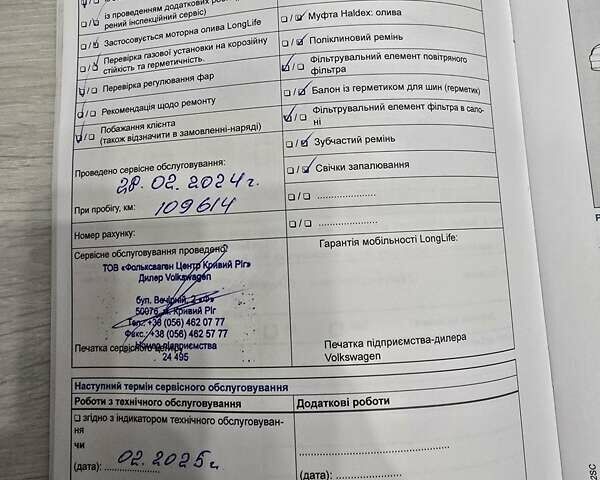 із проведенням додаткових робіт
рений інспекційний сервіс)
Застосовується моторна олива LongLife
Перевірка газової установки на корозійну
стійкість та герметичність.
Перевірка регулювання фар
Рекомендація щодо ремонту
Побажання клієнта
(також відзначити в замовленні-наряді)
Муфта Haldex: олива
Поліклиновий ремінь
Фільтрувальний елемент повітряного
фільтра
Балон із герметиком для шин (герметик)
Фільтрувальний елемент фільтра в сало-
ні
Зубчастий ремінь
Свічки запалювання
Проведено сервісне обслуговування:
28.02.2024 г.
При пробігу, км: 109614
Номер рахунку:
Сервісне обслуговування проведено:
ТОВ «Фольксваген Центр Кривий Ріг»
Дилер Volkswagen
бул. Вечірній, 2 «Ф»
50076, м. Кривий Ріг
Тел.: +38 (056) 462 07 77
Факс.: +38 (056) 462 57 77
Номер підприємства
24 495
Печатка сервісного центру
Гарантія мобільності LongLife:
Печатка підприємства-дилера
Volkswagen
Наступний термін сервісного обслуговування
Роботи з технічного обслуговування
згідно з індикатором технічного обслуговуван-
ня
чи
(дата): 02.2025 г.
Додаткові роботи
(дата):